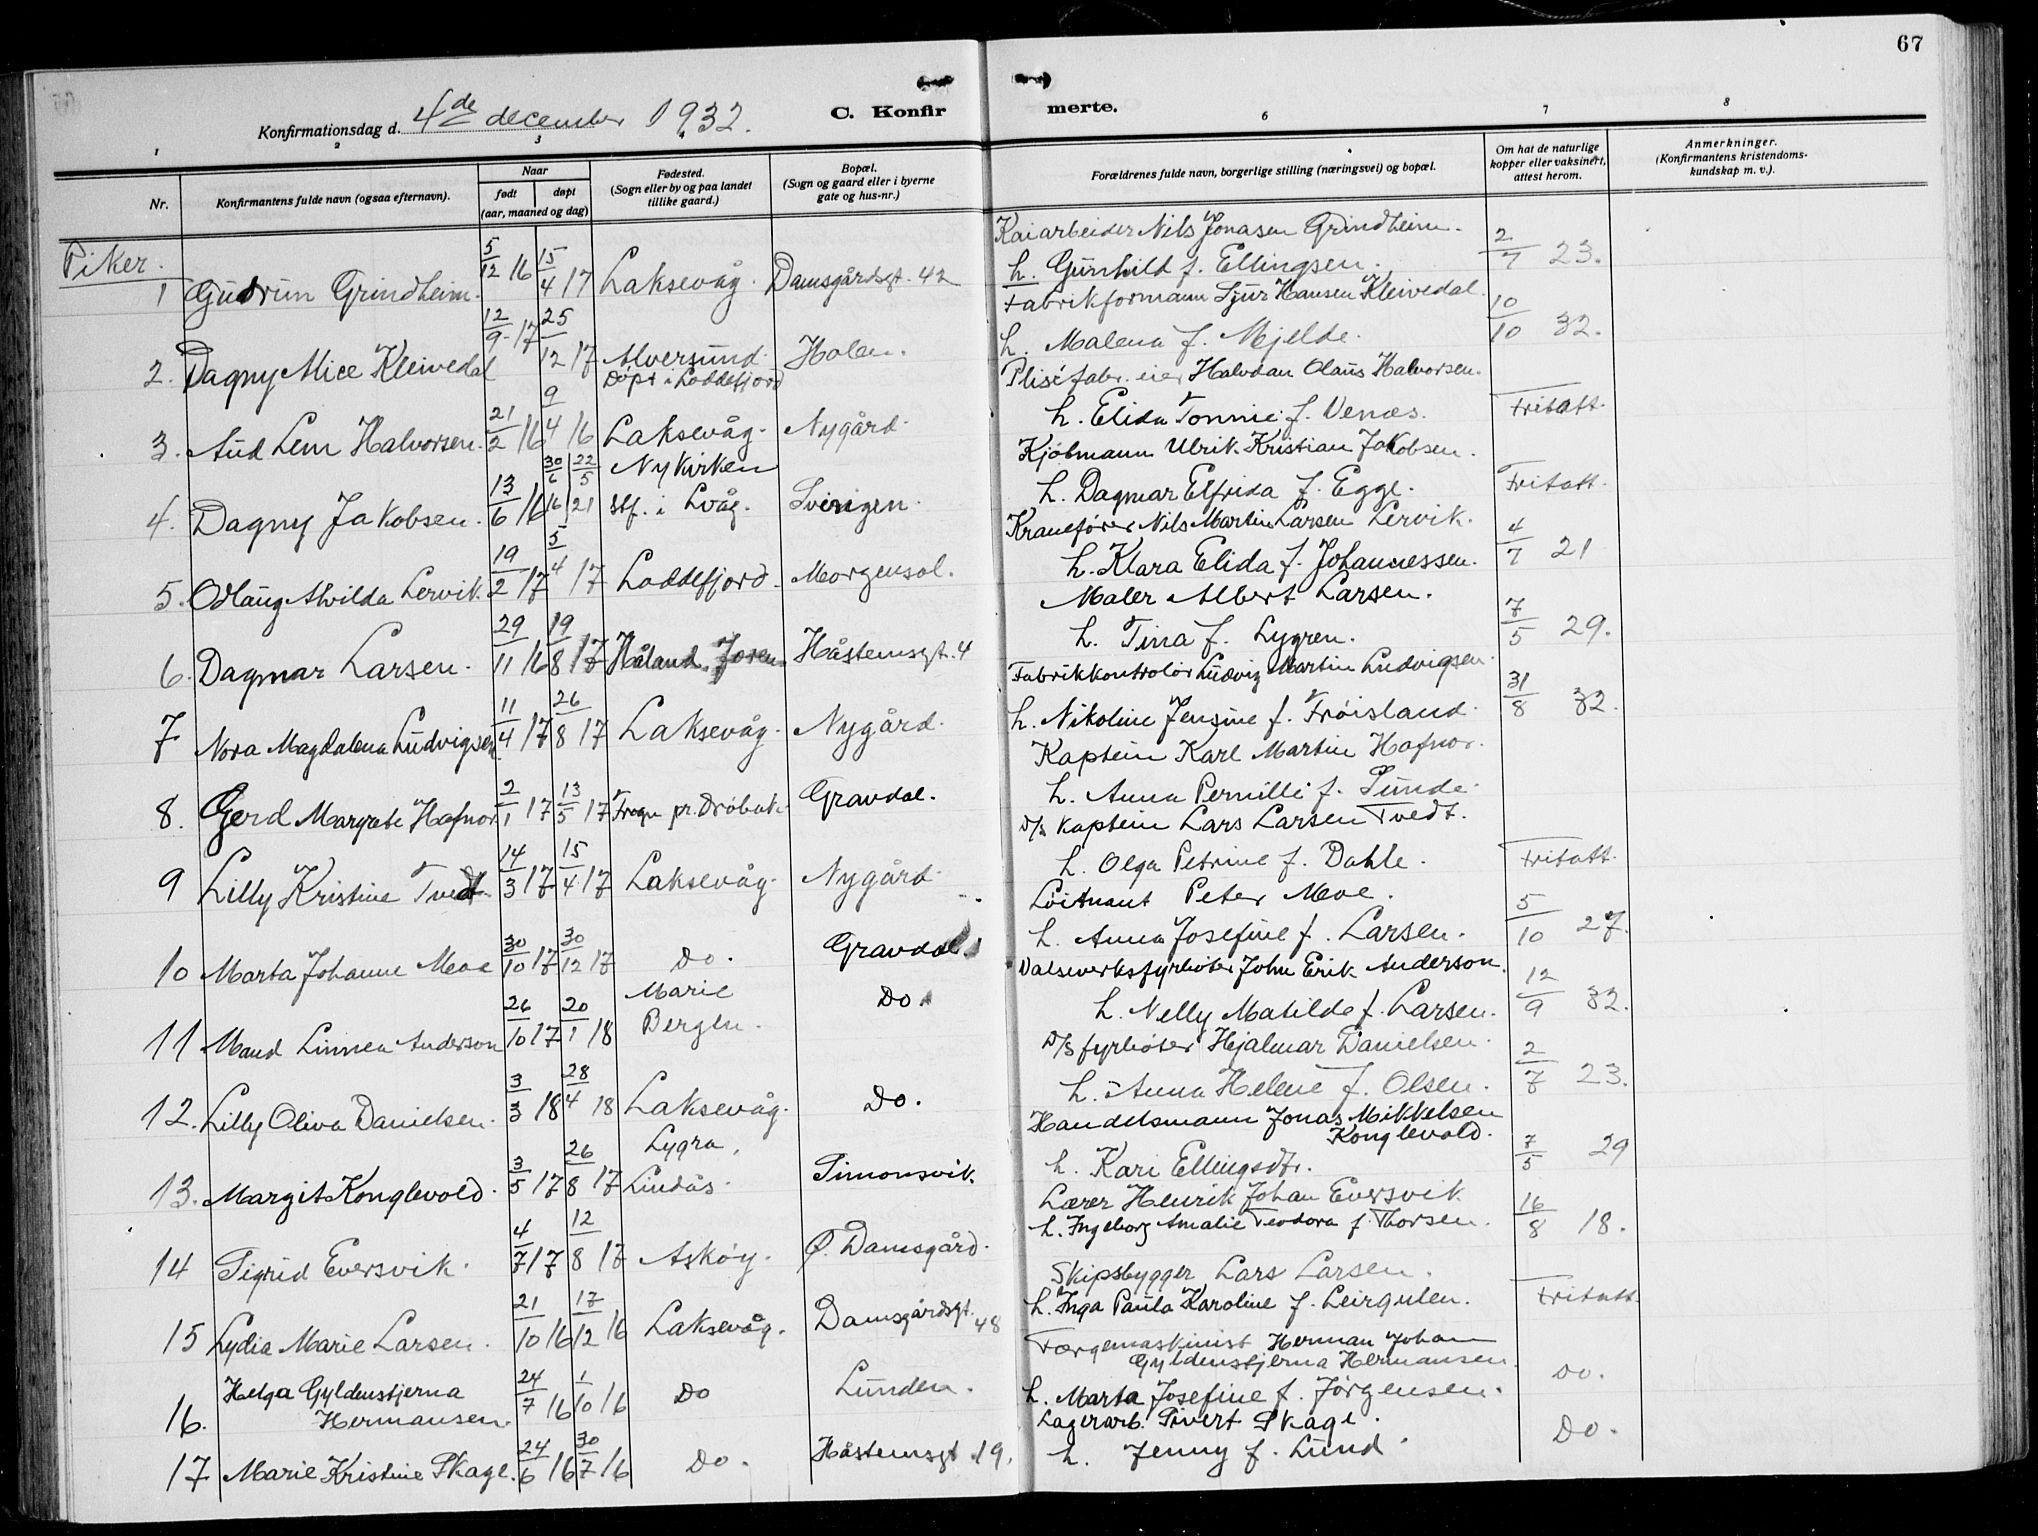 67
Konfirmationsdag d. 4de december 1932.
C. Konfirmerte.
1 2 3 4 6 7 8
Nr.
Konfirmantens fulde navn (ogsaa efternavn).
Naar
født
døpt
(aar, maaned og dag)
Fødested.
(Sogn eller by og paa landet
tillike gaard.)
Bopæl.
(Sogn og gaard eller i byerne
gate og hus-nr.)
Forældrenes fulde navn, borgerlige stilling (næringsvei) og bopæl.
Om hat de naturlige
kopper eller vaksinert,
attest herom.
Anmerkninger.
(Konfirmantens kristendoms-
kundskap m. v.).
Piker.
Kaiarbeider Nils Jonasen Grindheim.
1 Gudrun Grindheim. 5/12 16 15/4 17 Laksevåg. Damsgårdsgt. 42 h. Gunhild f. Ellingsen. 2/7 23.
Fabrikformann Sjur Hansen Kleivedal.
2. Dagny Alice Kleivedal 12/9 17 25/12 17 Alversund. Holen. h. Malena f. Mjelde. 10/10 32.
Døpt i Loddefjord
Plisefabr. eier Halvdan Olaus Halvorsen.
3. Aud Lem Halvorsen. 21/2 16 9/4 16 Laksevåg. Nygård. h. Elida Tonnie f. Venæs. Fritatt.
Kjöbmann Ulrik Kristian Jakobsen.
4. Dagny Jakobsen. 13/6 16 30/6 16 22/5 21 Nykirken
stf. i Lvåg. Sverigen. h. Dagmar Elfrida f. Egge. Fritatt.
Kranefører Nils Martin Larsen Lervik.
5. Odlaug Alvilda Lervik. 19/2 17 5/4 17 Loddefjord. Morgensol. h. Klara Elida f. Johannessen. 4/7 21
Maler Albert Larsen.
6. Dagmar Larsen. 29/11 16 19/8 17 Håland. Jæren. Håstemsgt. 4 h. Tina f. Lygren. 7/5 29.
Fabrikkontrolør Ludvig Martin Ludvigsen.
7 Nora Magdalena Ludvigsen. 11/4 17 26/8 17 Laksevåg. Nygård. h. Nikoline Jensine f. Frøisland. 31/8 32.
Kaptein Karl Martin Hafnor.
8. Gerd Margrete Hafnor. 2/1 17 13/5 17 Frogn pr. Drøbak. Gravdal. h. Anna Pernille f. Sunde.
D/S kaptein Lars Larsen Tvedt.
9 Lilly Kristine Tvedt 14/3 17 15/4 17 Laksevåg. Nygård. h. Olga Petrine f. Dahle. Fritatt.
Löitnant Peter Moe.
10 Marta Johanne Moe 30/10 17 30/12 17 Do. Gravdal. h. Anna Josefine f. Larsen. 5/10 27.
Valseverksfyrbøter John Erik Anderson.
11 Maud Linnea Anderson 26/10 17 20/1 18 Marie
Bergen. Do. h. Nelly Matilde f. Larsen. 12/9 32.
D/S fyrbøter Hjalmar Danielsen.
12. Lilly Oliva Danielsen. 3/3 18 28/4 18 Laksevåg. Do. h. Anna Helene f. Olsen. 2/7 23.
Handelsmann Jonas Mikkelsen
Konglevold.
13. Margit Konglevold. 3/5 17 26/8 17 Lygra,
Lindås. Simonsvik. h. Kari Ellingsdtr. 7/5 29
Lærer Henrik Johan Eversvik
14 Sigrid Eversvik. 4/7 17 12/8 17 Askøy. Ø. Damsgård. h. Ingeborg Amalie Teodora f. Thorsen. 16/8 18.
Skipsbygger Lars Larsen.
15 Lydia Marie Larsen. 21/10 16 17/12 16 Laksevåg. Damsgårdsgt. 48 h. Inga Paula Karoline f. Leirgulen. Fritatt.
Færgemaskinist Herman Johan
Gyldenstjerna Hermansen.
16. Helga Gyldenstjerna
Hermansen. 24/7 16 1/10 16 Do Lunden. h. Marta Josefine f. Jørgensen. Do.
Lagerarb. Sivert Skage.
17 Marie Kristine Skage. 24/6 16 30/7 16 Do. Håstemsgt 19. h. Jenny f. Lund. Do.